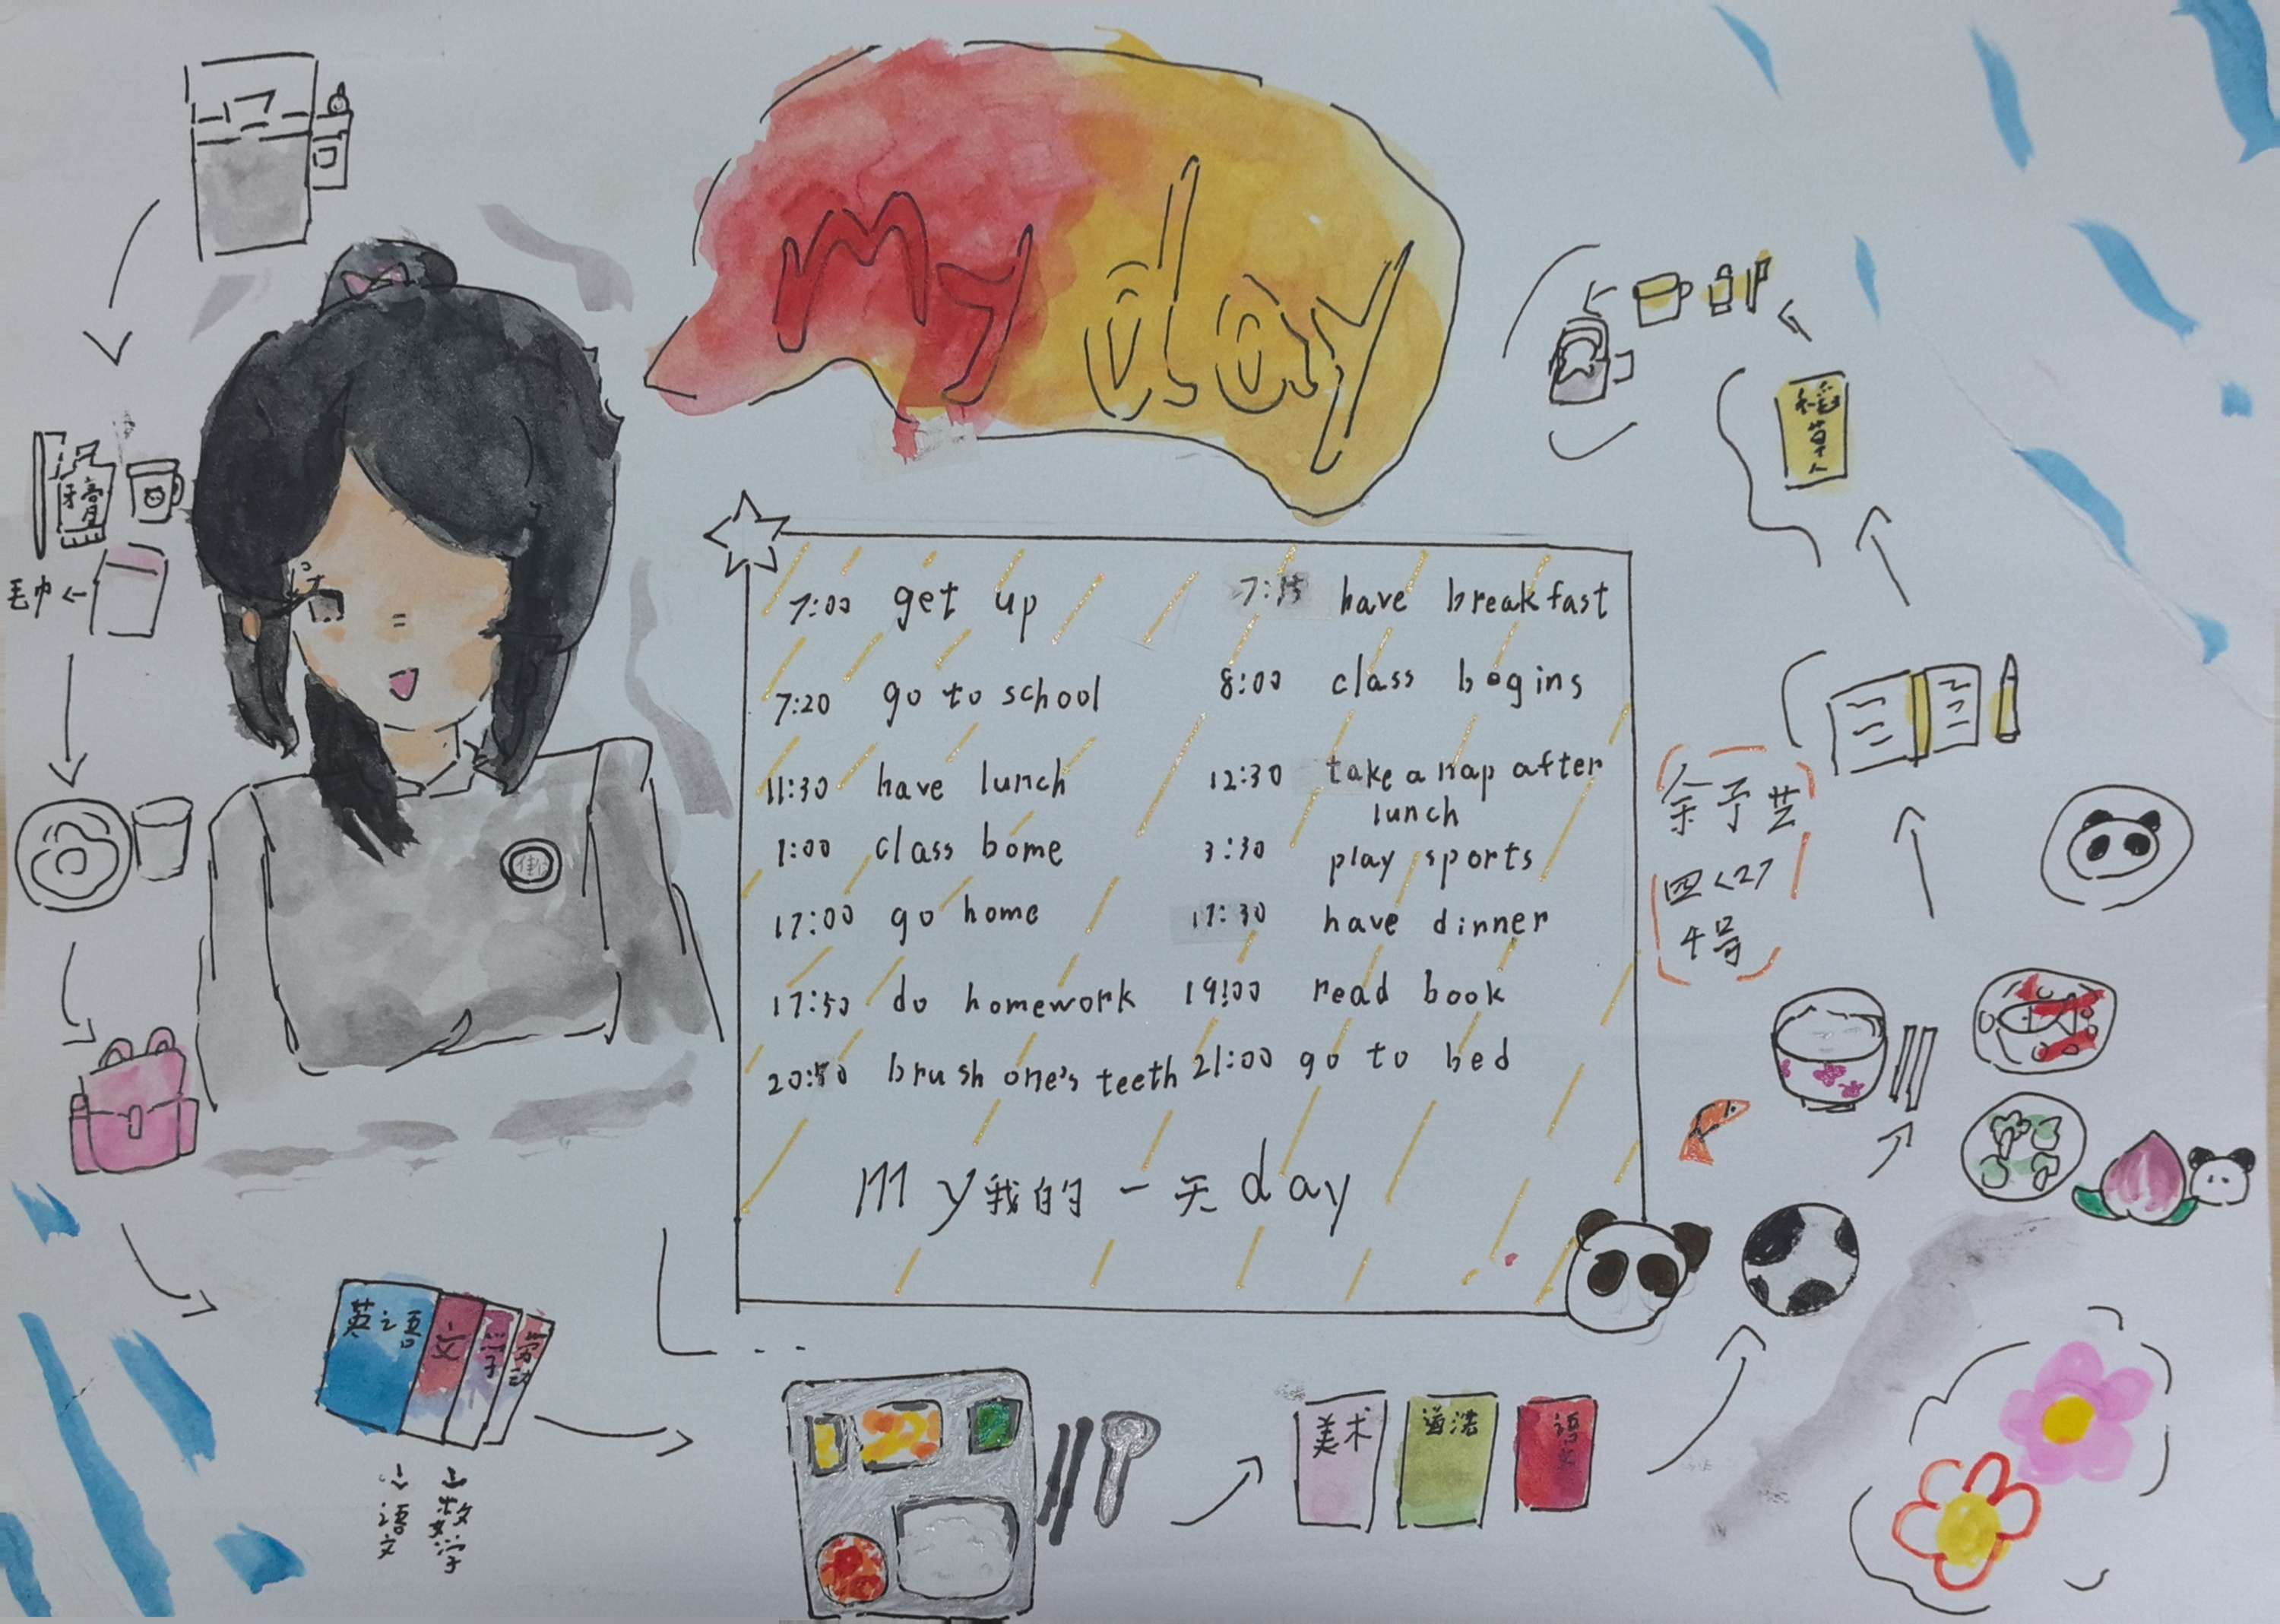 My day
牙膏
毛巾
7:00 get up
7:15 have breakfast
7:20 go to school
8:00 class begins
11:30 have lunch
12:30 take a nap after
lunch
1:00 class bome
3:30 play sports
17:00 go home
17:30 have dinner
17:50 do homework
19:00 read book
brush one's teeth
21:00 go to bed
My我的一天day
稻草人
余予芸
四<2>
4号
英语
文
学
劳动
语文
数学
美术
道法
语文